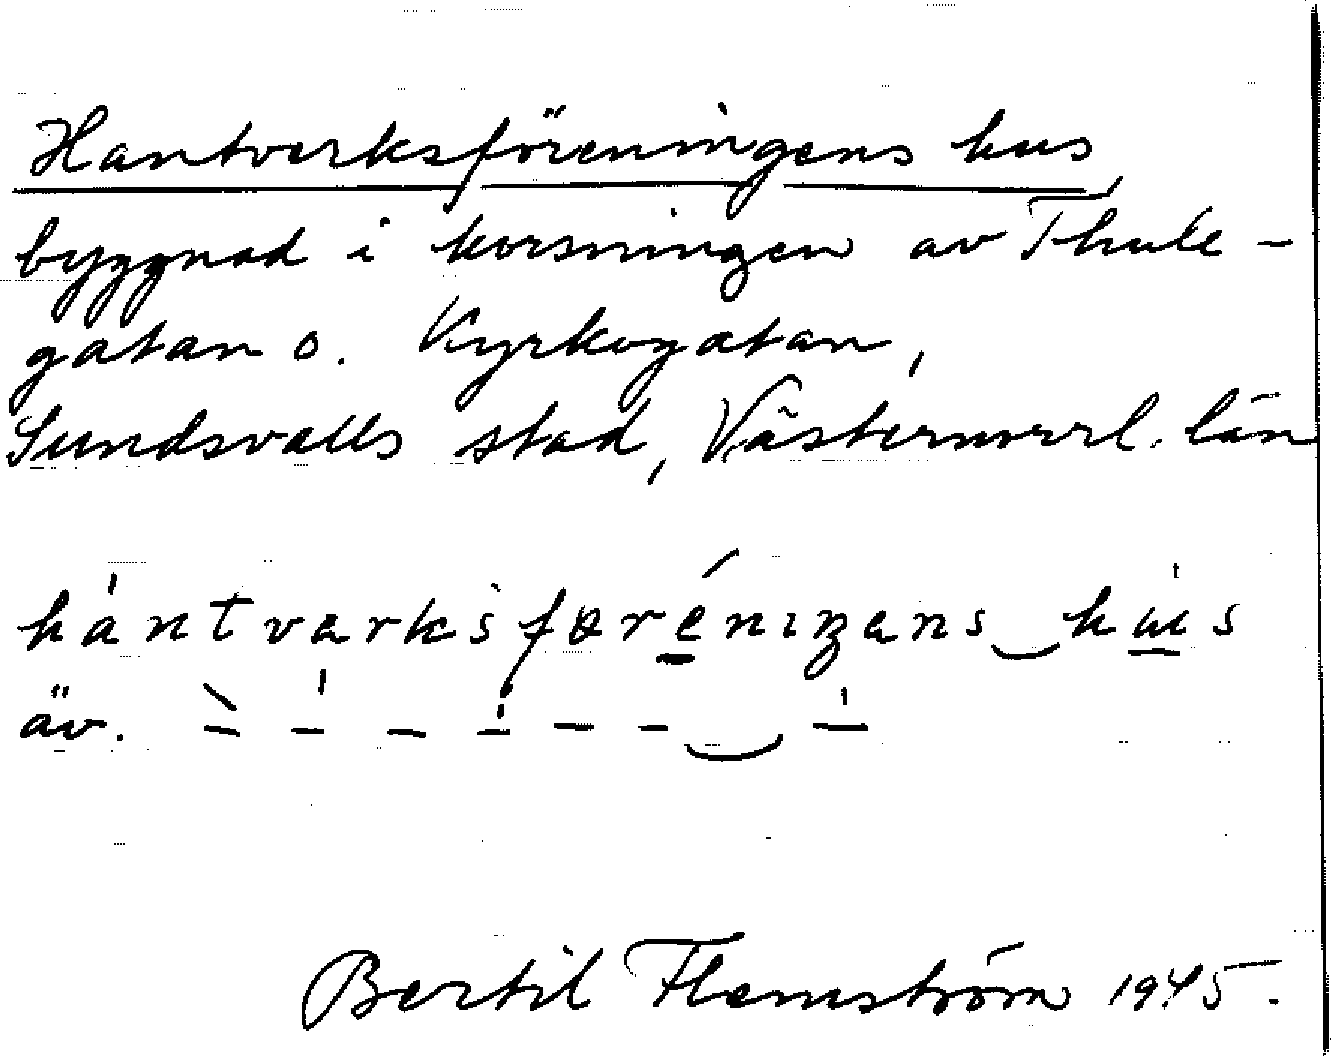 Hantverksföreningens hus
byggnad i korsningen av Thule-
gatan o. Kyrkogatan,
Sundsvalls stad, Västernorrl. län
hántvarksførénıŋans‿hu̇s
äv. ˋ– –́ – –̇ – –‿–́
Bertil Flemström 1945.